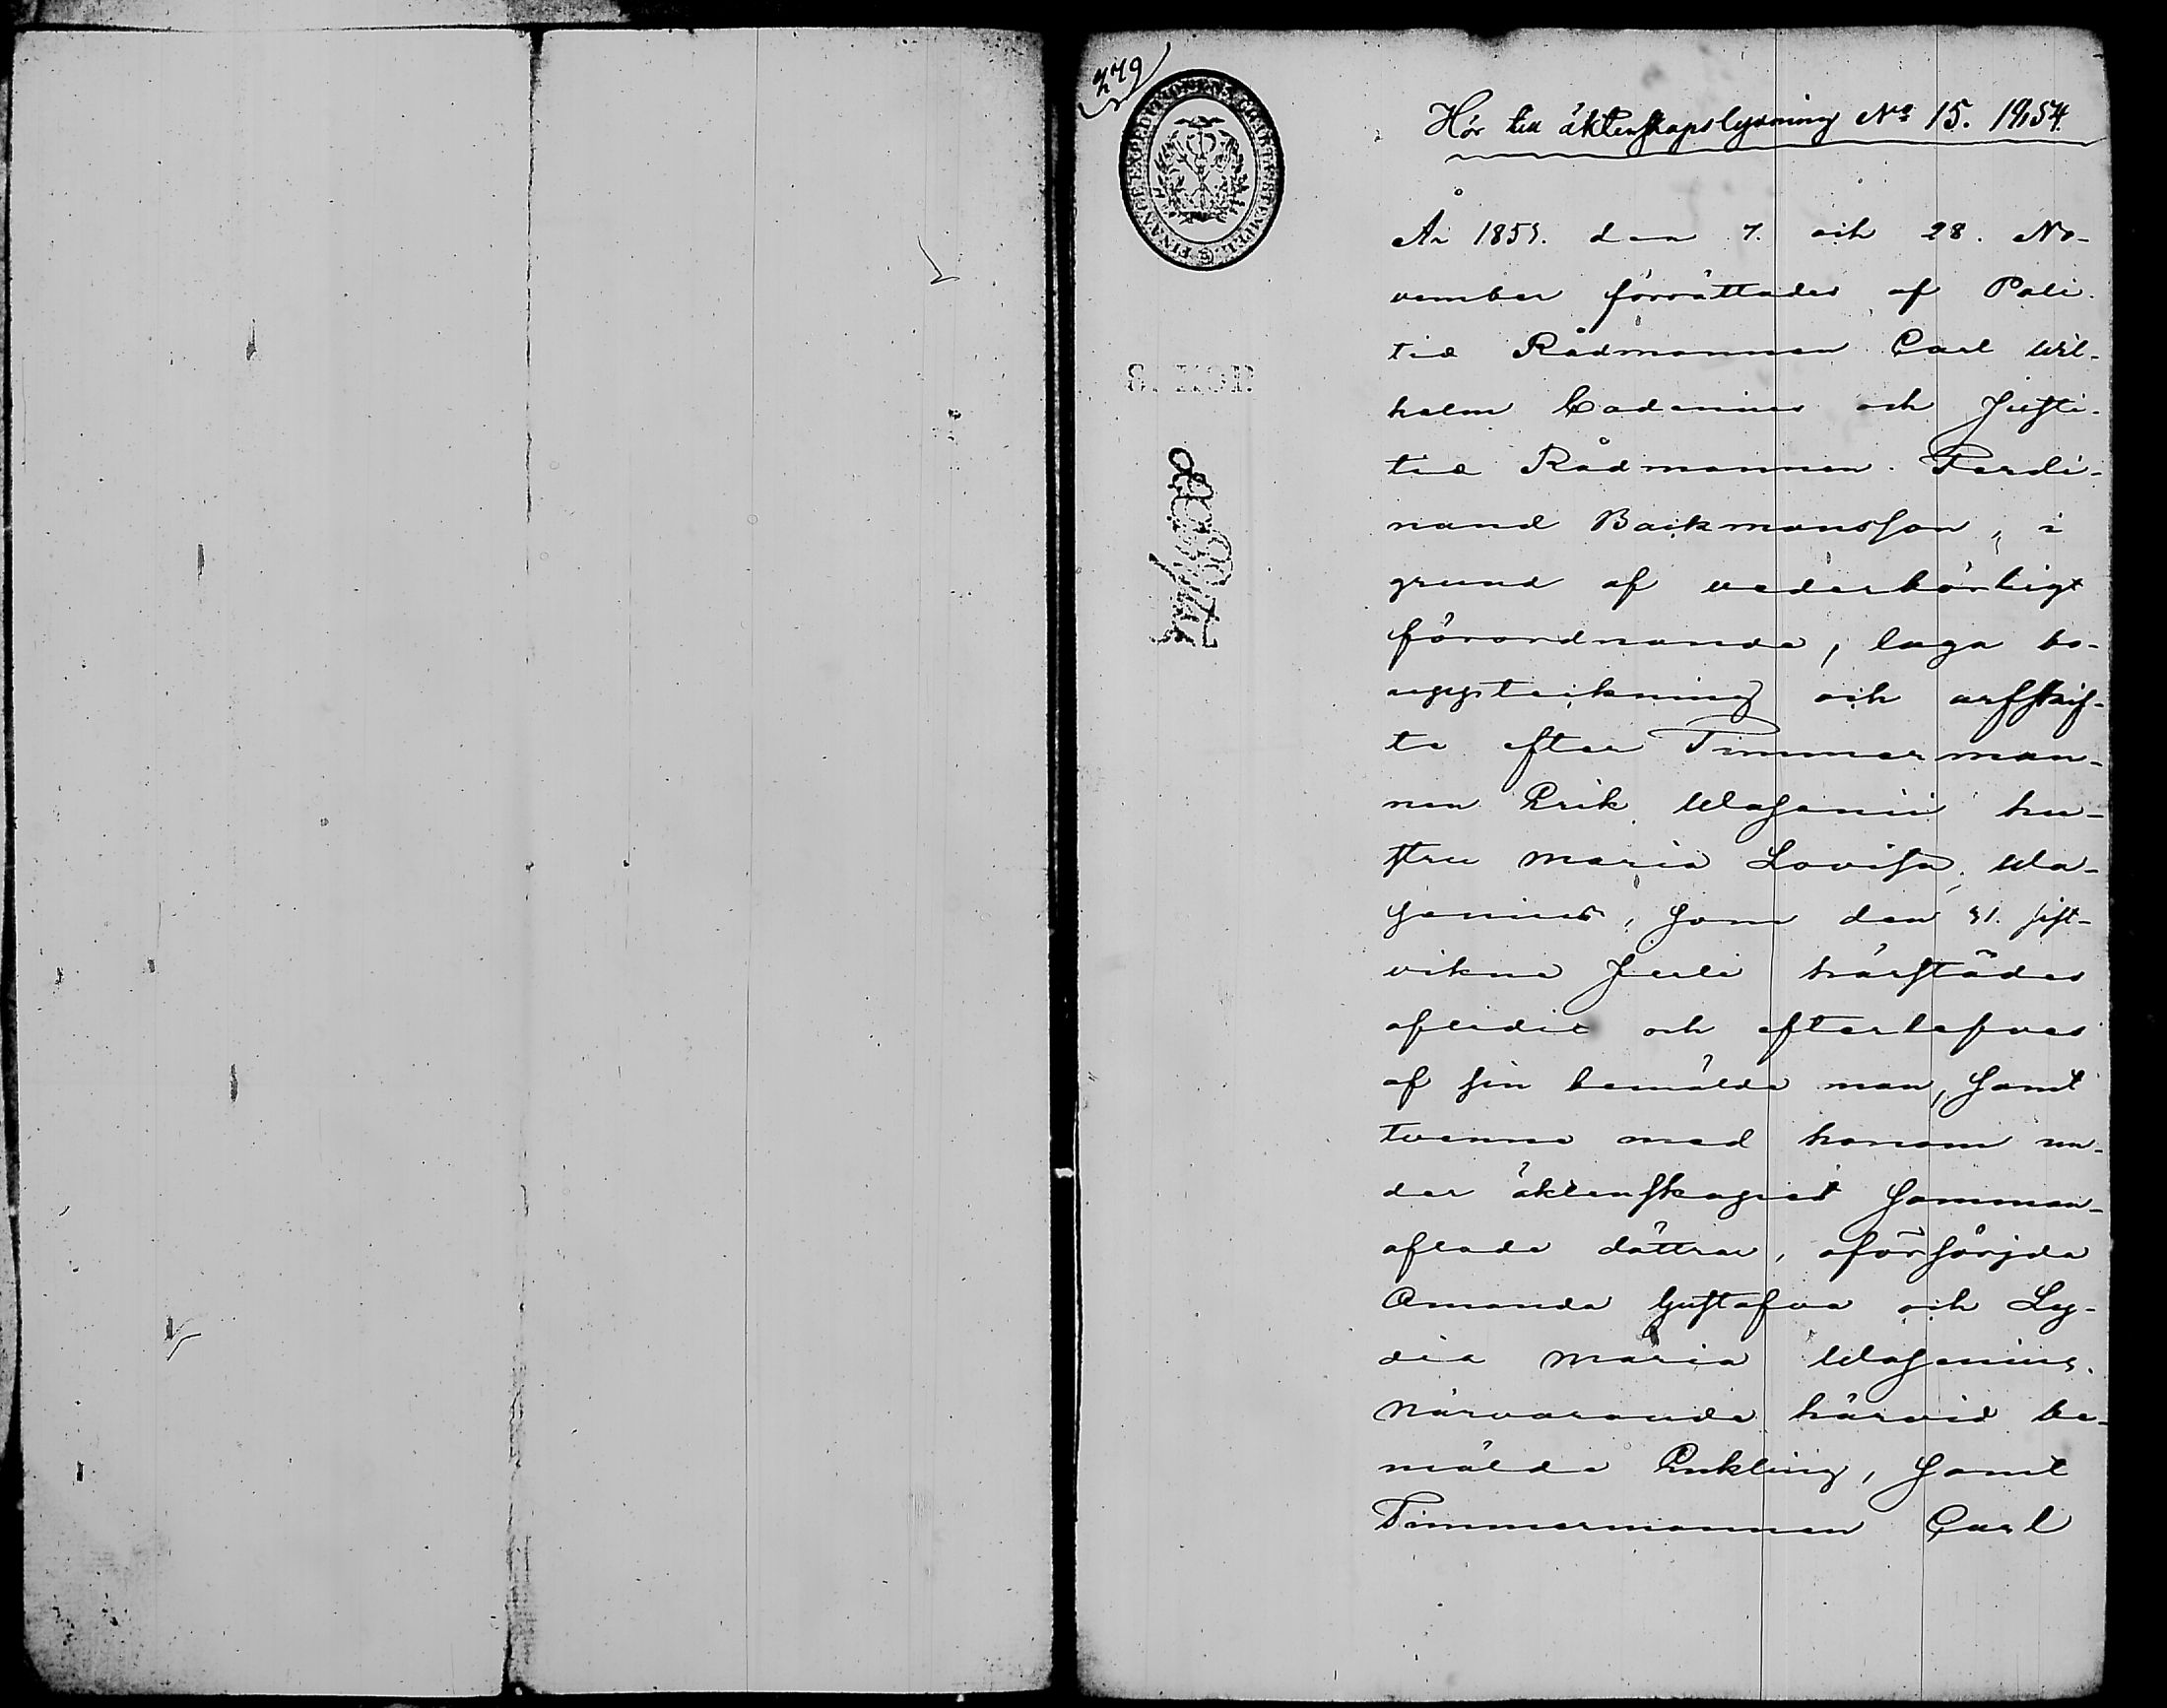 279
FINANCE EXPEDITIONENS CHARTE STEMPEL
Hör till äktenskapslysning No 15. 1954.
8. KOP.
År 1853. den 7. och 28. No-
vember förrättades af Poli-
tie Rådmannen Carl Wil-
helm Cadenius och Justi-
tie Rådmannen Ferdi-
nand Backmansson, i
grund af vederbörligt
förordnande, laga bo-
uppteckning och arfskif-
te efter Timmerman-
nen Erik Wasenii hu-
stru Maria Lovisa Wa-
senius, som den 31. sist-
vikne Juli härstädes
afledit och efterlefves
af sin bemälde man, samt
tvenne med honom un-
der äktenskapet samman-
aflade döttrar, oförsörjda
Amanda Gustafva och Ly-
dia Maria Wasenius.
Närvarande härvid be-
mälde Enkling, samt
Timmermannen Carl